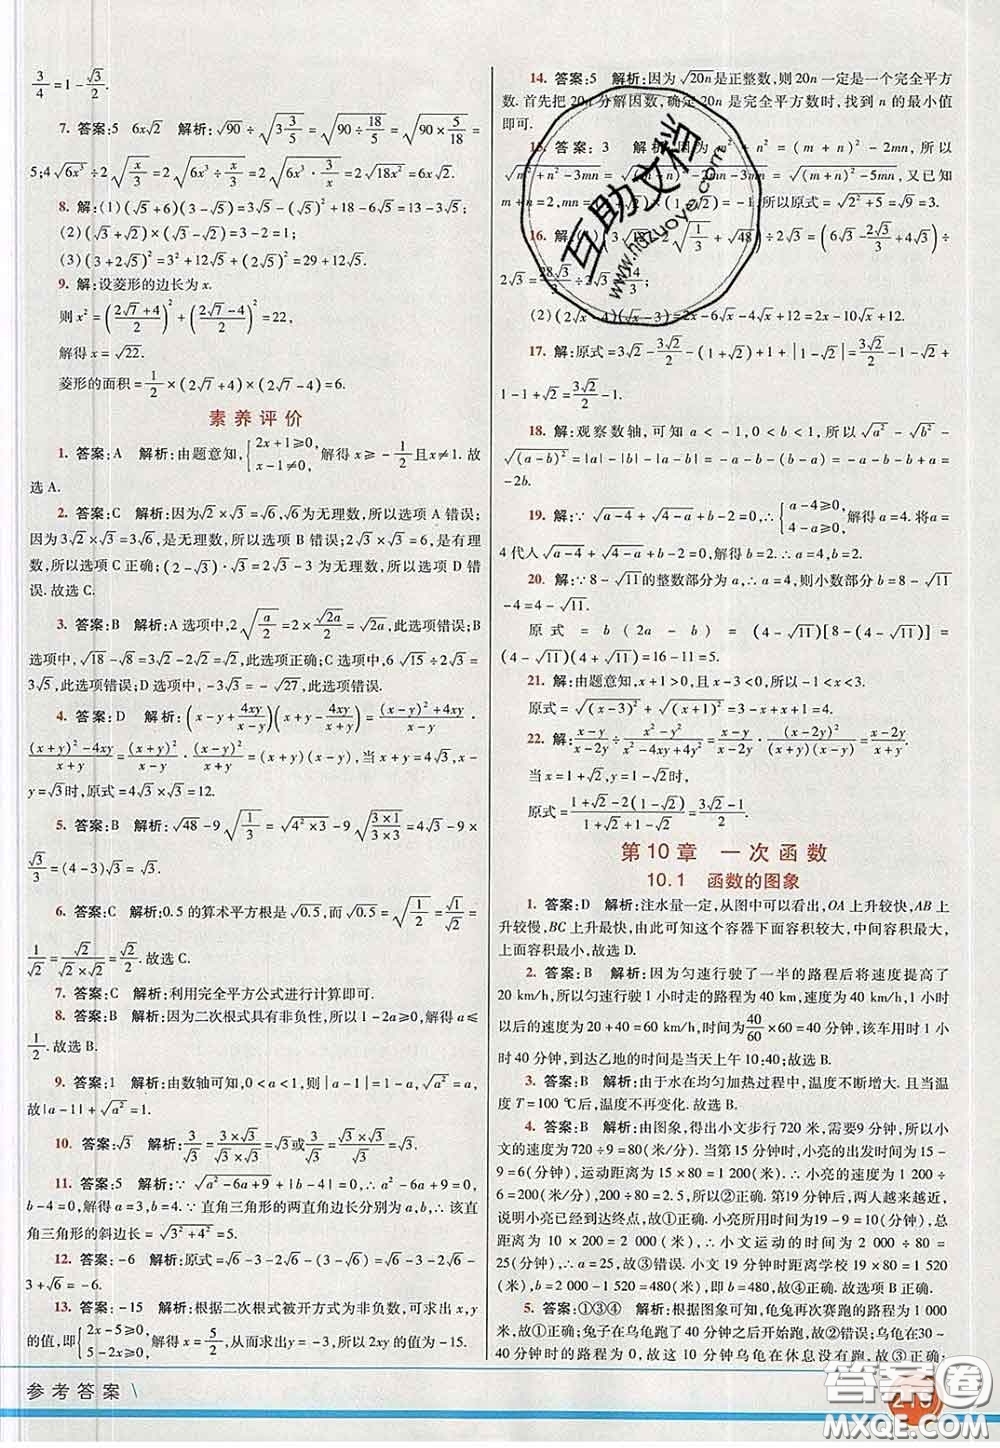 3/4=1-√3/2.
7. 答案:5 6√2 解析:√90÷√(3 3/5)=√(90÷18/5)=√(90×5/18)=
5;4√(6x³)÷2√(x/3)=2√(6x³÷x/3)=2√(6x³·3/x)=2√(18x²)=6x√2.
8. 解:(1)(√5+6)(3-√5)=3√5-(√5)²+18-6√5=13-3√5;
(2)(√3+√2)×(√3-√2)=3-2=1;
(3)(2√3+√5)²=12+4√15+5=29+12√5.
9. 解:设菱形的边长为x.
则x²=((2√7+4)/2)²+((2√7-4)/2)²=22,
解得x=√22.
菱形的面积=1/2×(2√7+4)×(2√7-4)=6.
素养评价
1. 答案:A 解析:由题意知,{2x+1≥0, x-1≠0, 解得x≥-1/2且x≠1.故
选A.
2. 答案:C 解析:因为√2×√3=√6,√6为无理数,所以选项A错误;
因为3√2×√3=3√6,是无理数,所以选项B错误;2√3×√3=6,是有理
数,所以选项C正确;(2-√3)·√3=2√3-3为无理数,所以选项D错
误.故选C.
3. 答案:B 解析:A选项中,2√(a/2)=2×√(2a)/2=√(2a),此选项错误;B
选项中,√18-√8=3√2-2√2=√2,此选项正确;C选项中6√15÷2√3=
3√5,此选项错误;D选项中,-3√3=-√27,此选项错误.
4. 答案:D 解析:(x-y+4xy/(x-y))(x+y-4xy/(x+y))=((x-y)²+4xy)/(x-y)·
((x+y)²-4xy)/(x+y)=(x+y)²/(x-y)·(x-y)²/(x+y)=(x+y)(x-y),当x+y=4√3,x-
y=√3时,原式=4√3×√3=12.
5. 答案:B 解析:√48-9√(1/3)=√(4²×3)-9√((3×1)/(3×3))=4√3-9×
√3/3=(4-3)√3=√3.
6. 答案:C 解析:0.5的算术平方根是√0.5,而√0.5=√(1/2)=√1/√2=
1/√2=√2/(√2×√2)=√2/2.故选C.
7. 答案:C 解析:利用完全平方公式进行计算即可.
8. 答案:B 解析:因为二次根式具有非负性,所以1-2a≥0,解得a≤
1/2.故选B.
9. 答案:1 解析:由数轴可知,0<a<1,则|a-1|=1-a,√(a²)=a,
故|a-1|+√(a²)=1.
10. 答案:√3 解析:3/√3=(3×√3)/(√3×√3)=√3或3/√3=(√3×√3)/√3=√3.
11. 答案:5 解析:∵√(a²-6a+9)+|b-4|=0,∴a²-6a+9=0,b-4
=0,解得a=3,b=4.∵直角三角形的两直角边长分别为a,b,∴该直
角三角形的斜边长=√(3²+4²)=5.
12. 答案:-6 解析:原式=√6-3-2√6-(3-√6)=√6-3-2√6
-3+√6=-6.
13. 答案:-15 解析:根据二次根式被开方式为非负数,可求出x,y
的值,即{2x-5≥0, 5-2x≥0, 解得x=5/2,从而求出y=-3,所以2xy的值为-15.
14. 答案:5 解析:因为√(20n)是正整数,则20n一定是一个完全平方
数.首先把20n分解因数,确定20n是完全平方数时,找到n的最小值
即可.
15. 答案:3 解析:因为m²+n²=(m+n)²-2mn,所以
√(m²+n²-3mn)=√((m+n)²-2mn-3mn)=√((m+n)²-5mn),又已知
m+n=2,mn=(1+√2)×(1-√2)=-1,所以原式=√(2²+5)=√9=3.
16. 解:2√(1/3)+√48)÷2√3=(6√3-2√3/3+4√3)÷
2√3=28√3/3÷2√3=14/3;
(2)(2√x-4)(√x-3)=2x-6√x-4√x+12=2x-10√x+12.
17. 解:原式=3√2/2-3√2/2-(1+√2)+1+|1-√2|=
1-1-√2+√2=3√2/2-1.
18. 解:观察数轴,可知a<-1,0<b<1,所以√(a²)-√(b²)-
√((a-b)²)=|a|-|b|-|a-b|=-a-b-(b-a)=-a-b-b+a=
-2b.
19. 解:∵√(a-4)+√(4-a)+b-2=0,∴{a-4≥0, 4-a≥0, 解得a=4.将a=
4代入√(a-4)+√(4-a)+b-2=0,解得b=2.∴a=4,b=2.
20. 解:∵8-√11的整数部分为a,∴a=4,则小数部分b=8-√11
-4=4-√11.
原式=b(2a-b)=(4-√11)[8-(4-√11)]=
(4-√11)(4+√11)=16-11=5.
21. 解:由题意知,x+1>0,且x-3<0,所以-1<x<3.
原式=√((x-3)²)+√((x+1)²)=3-x+x+1=4.
22. 解:(x-y)/(x-2y)÷(x²-y²)/(x²-4xy+4y²)=(x-y)/(x-2y)·(x-2y)²/((x+y)(x-y))=(x-2y)/(x+y).
当x=1+√2,y=1-√2时,
原式=(1+√2-2(1-√2))/(1+√2+1-√2)=(3√2-1)/2.
第10章 一次函数
10.1 函数的图象
1. 答案:D 解析:注水量一定,从图中可以看出,OA上升较快,AB上
升较慢,BC上升最快,由此可知这个容器下面容积较大,中间容积最大,
上面容积最小,故选D.
2. 答案:B 解析:因为匀速行驶了一半的路程后将速度提高了
20 km/h,所以匀速行驶1小时走的路程为40 km,速度为40 km/h,1小时
以后的速度为20+40=60 km/h,时间为40/60×60=40分钟,该车用时1小
时40分钟,到达乙地的时间是当天上午10:40;故选B.
3. 答案:B 解析:由于水在均匀加热过程中,温度不断增大.且当温
度T=100 ℃后,温度不再变化.故选B.
4. 答案:B 解析:由图象,得出小文步行720米,需要9分钟,所以小
文的速度为720÷9=80(米/分).当第15分钟时,小亮的出发时间为15
-9=6(分钟),运动距离为15×80=1 200(米),∴小亮的速度为
1 200÷6=200(米/分),200÷80=2.5,所以②正确.当第19分钟后,两人越来越近,
说明小亮已经到达终点,故①正确.小亮所用时间为19-9=10(分钟),
10×200=2 000(米),∴小文运动的时间为2 000÷80=25(分钟),
∴a=25,故③错误.小文19分钟时距离学校19×80=1 520
(米),b=2 000-1 520=480(米),即b=480,故④正确.故选项B正确.
5. 答案:①③④ 解析:根据图象可知,龟兔再次赛跑的路程为1 000
米,故①正确;兔子在乌龟跑了40分钟后开始跑,故②错误;乌龟在30~
40分钟时的路程为0,故这10分钟乌龟在休息没有跑,故③正确;
参考答案
219
互助文档
www.hdzuoye.com
答案圈
MXQE.COM